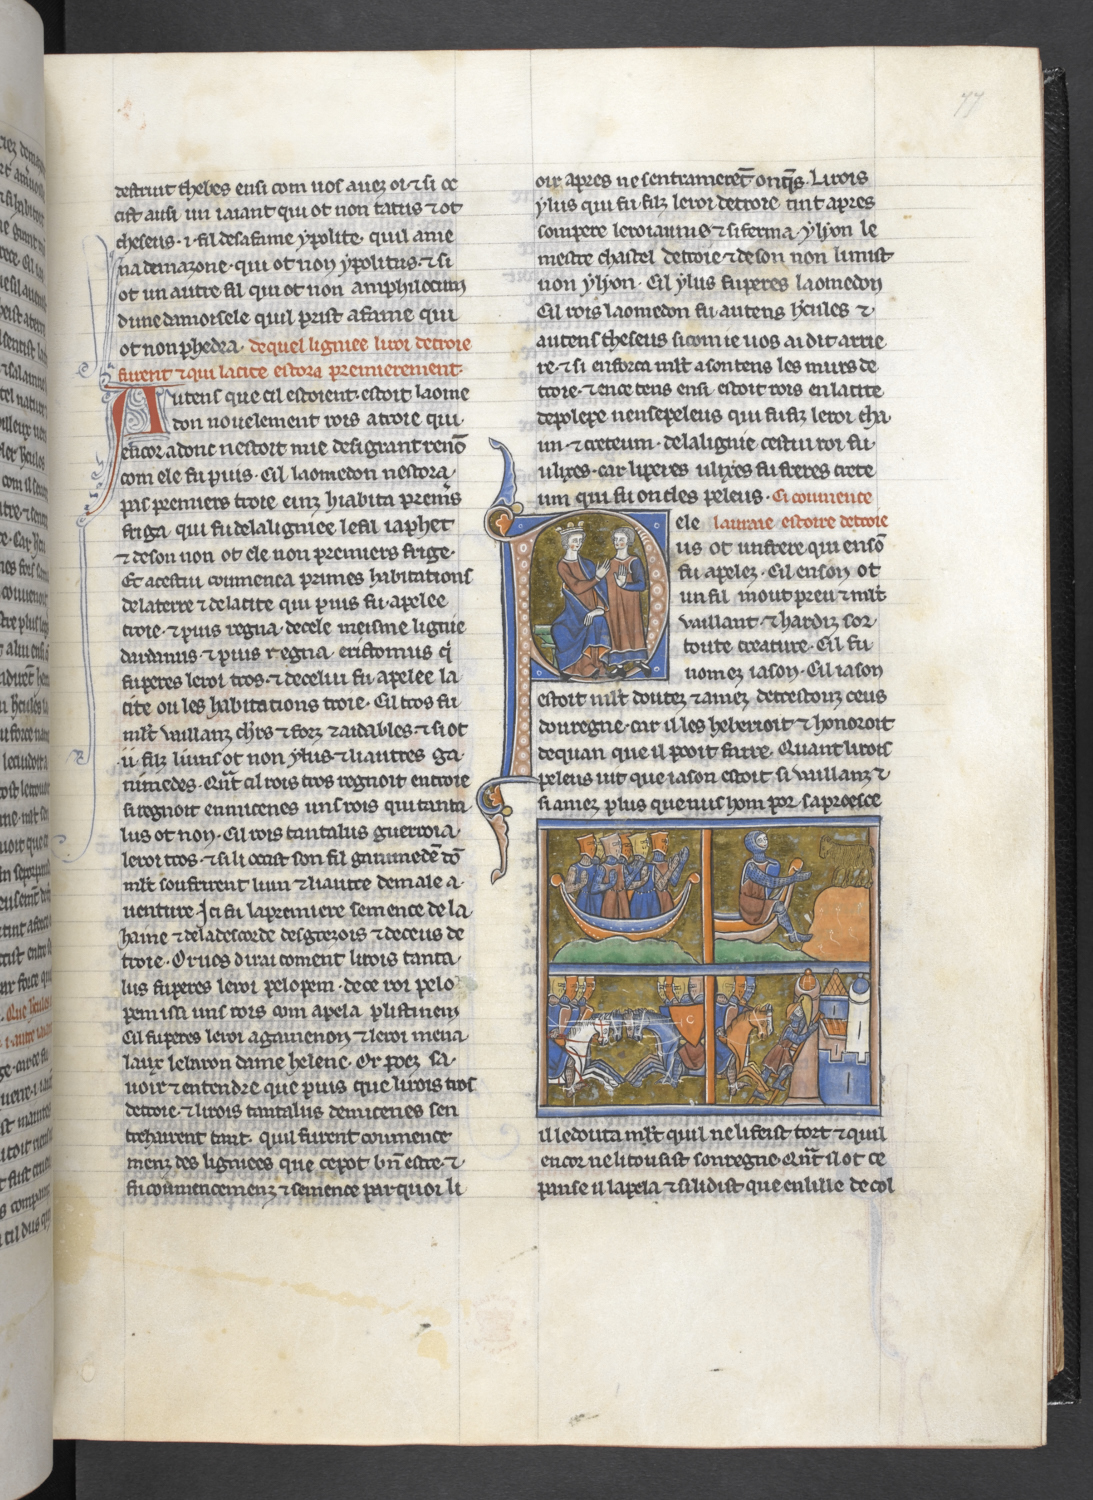 77
destruit thebes ensi com vos avez oi ⁊ si oc
cist ausi un iaiant qui ot non taurus ⁊ ot
theseus · i · fil de sa fame ypolite · quil ame
na de mazone · qui ot non ypolitus · ⁊ si
ot un autre fil qui ot non amphilocum
dune damoisele quil prist a fame qui
ot non phedra · de quel ligniee li roi de troie
furent ⁊ qui la cite estora premierement ·
Autens que cil estoient · estoit laome
don novelement rois a troie qui ·
encor adonc nestoit mie de si grant renō
com ele fu puis · Cil laomedon nestora ·
pas premiers troie einz habita prem̄s
friga · qui fu de la ligniee le fil iaphet
⁊ de son non ot ele non premiers frige ·
Et a cestui comenca primes habitations
de la terre ⁊ de la cite qui puis fu · apelee
troie · ⁊ puis regna · de cele meisme lignie
dardanus · ⁊ puis regna erictomus q̄
fu peres le roi tros · ⁊ de celui fu apelee la
cite ou les habitations troie · Cil tros fu
ml̄t vaillanz ch̄rs ⁊ forz ⁊ aidables · ⁊ si ot
· ii · filz li uns ot non ylus · ⁊ li autres ga ·
nimedes · Qn̄t cil rois tros regnoit en troie
si regnoit en micenes uns rois qui tanta
lus ot non · Cil rois tantalus guerroia ·
le roi tros · ⁊ si li occist son fil ganimedē dō
ml̄t soufrirent lun ⁊ lautre de male a ·
venture · Ici fu la premiere semence de la ·
haine ⁊ de la descorde des grezois ⁊ de ceus de
troie · Or vos dirai coment li rois tanta ·
lus fu peres le roi pelopem · de ce roi pelo
pem issi uns rois com apela plistinem
Cil fu peres le roi agamenon ⁊ le roi mena
laux le baron dame helene · Or poez sa ·
voir ⁊ entendre que puis que li rois tros
de troie · ⁊ li rois tantalus de micenes sen
trehairent tant · quil furent comence
menz des lignees que ce pot bn̄ estre · ⁊
fu comencemenz ⁊ semence par quoi li
oir apres ne sentramerēt onq̄s · Li rois
ylus qui fu filz le roi de troie tint apres
son pere le roiaume ⁊ si ferma · ylyon le
mestre chastel de troie ⁊ de son non li mist
non ylyon · Cil ylus fu peres laomedon
Cil rois laomedon fu autens h̄cules ⁊ ·
autens theseus si com ie vos ai dit arrie
re · ⁊ si enforca ml̄t a son tens les murs de
troie · ⁊ en ce tens ensi estoit rois en la cite
de polepe nense peleus qui fu fiz le roi cha
un · ⁊ creteum · de la lignie cestui roi fu ·
ulixes · car li peres ulixes fu freres crete
um qui fu oncles peleus · Ci comence
Pele la vraie estoire de troie
us ot un frere qui ensō
fu apelez · Cil enson ot
un fil mout preu ⁊ ml̄t
vaillant · ⁊ hardiz sor ·
toute creature · Cil fu
nomez iason · Cil iason
estoit ml̄t doutez ⁊ amez de trestouz ceus
dou regne · car il les heberioit ⁊ honoroit
de quan que il pooit faire · Quant li rois
peleus vit que iason estoit si vaillanz ⁊
si amez plus que nus hom por sa proesce
il le douta ml̄t quil ne li feist tort ⁊ quil
encor ne li tousist son regne · Qn̄t il ot ce
panse il lapela ⁊ si li dist que en lille de col